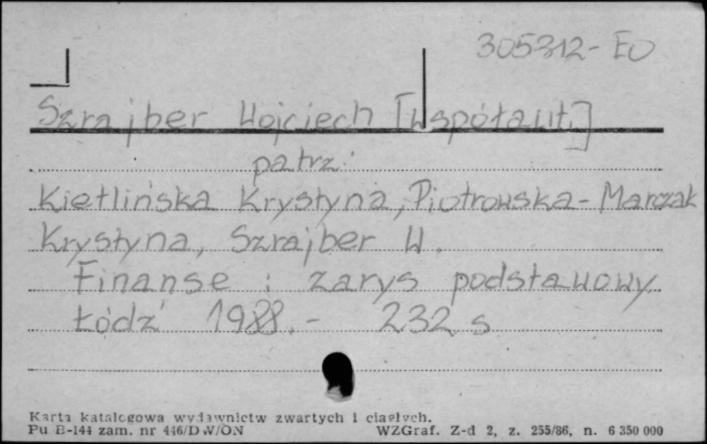 305312-EO
Szrajber Wojciech [współaut.]
patrz:
Kietlińska Krystyna, Piotrowska-Marczak
Krystyna, Szrajber W.
Finanse : zarys podstawowy
Łódź 1988.- 232 s
Karta katalogowa wydawnictw zwartych i ciągłych.
Pu B-144 zam. nr 446/D.W/ON WZGraf. Z-d 2, z. 255/86, n. 6 350 000